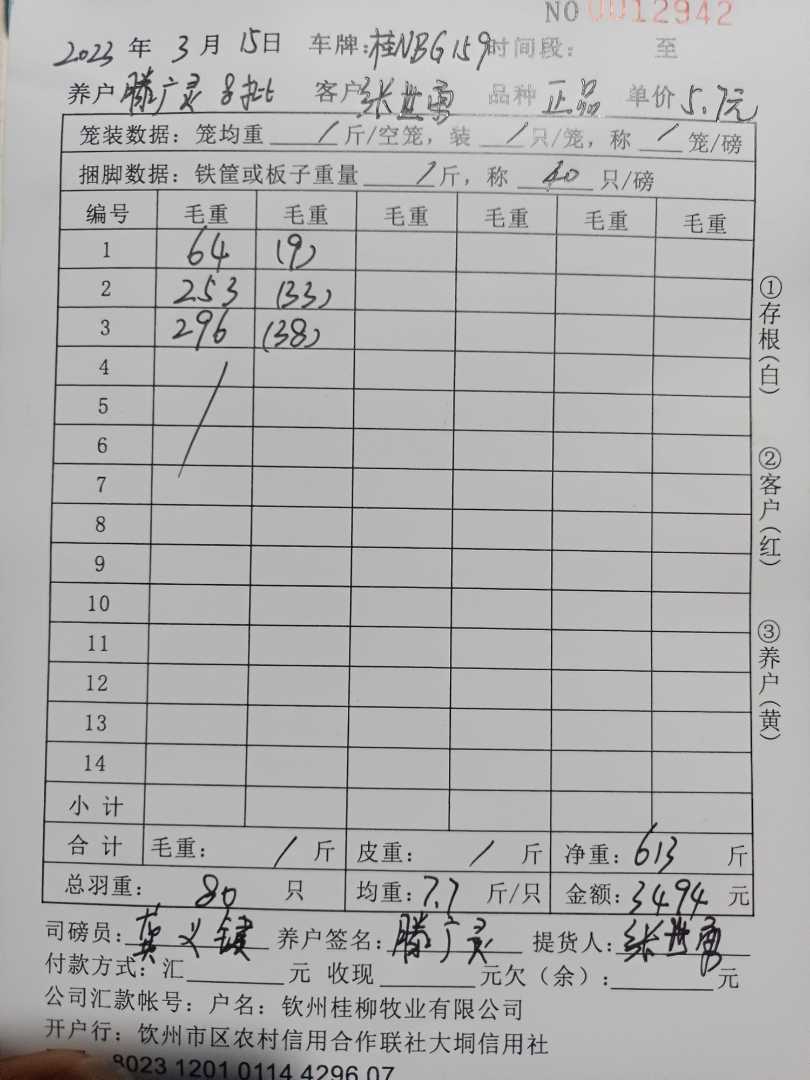 NO 0012942
2023 年 3 月 15日 车牌:桂NBG159 时间段: 至
养户 滕广灵 8批 客户 张世勇 品种 正品 单价 5.7元
笼装数据: 笼均重 / 斤/空笼, 装 / 只/笼, 称 / 笼/磅
捆脚数据: 铁筐或板子重量 / 斤, 称 40 只/磅
编号 毛重 毛重 毛重 毛重 毛重 毛重
1 64 (9)
2 253 (33)
3 296 (38)
4
5
6
7
8
9
10
11
12
13
14
小计
合计 毛重: / 斤 皮重: / 斤 净重: 613 斤
总羽重: 80 只 均重: 7.7 斤/只 金额: 3494 元
司磅员: 龚义键 养户签名: 滕广灵 提货人: 张世勇
付款方式: 汇 元 收现 元欠(余): 元
公司汇款帐号: 户名: 钦州桂柳牧业有限公司
开户行: 钦州市区农村信用合作联社大垌信用社
8023 1201 0114 4296 07
①存根(白)
②客户(红)
③养户(黄)